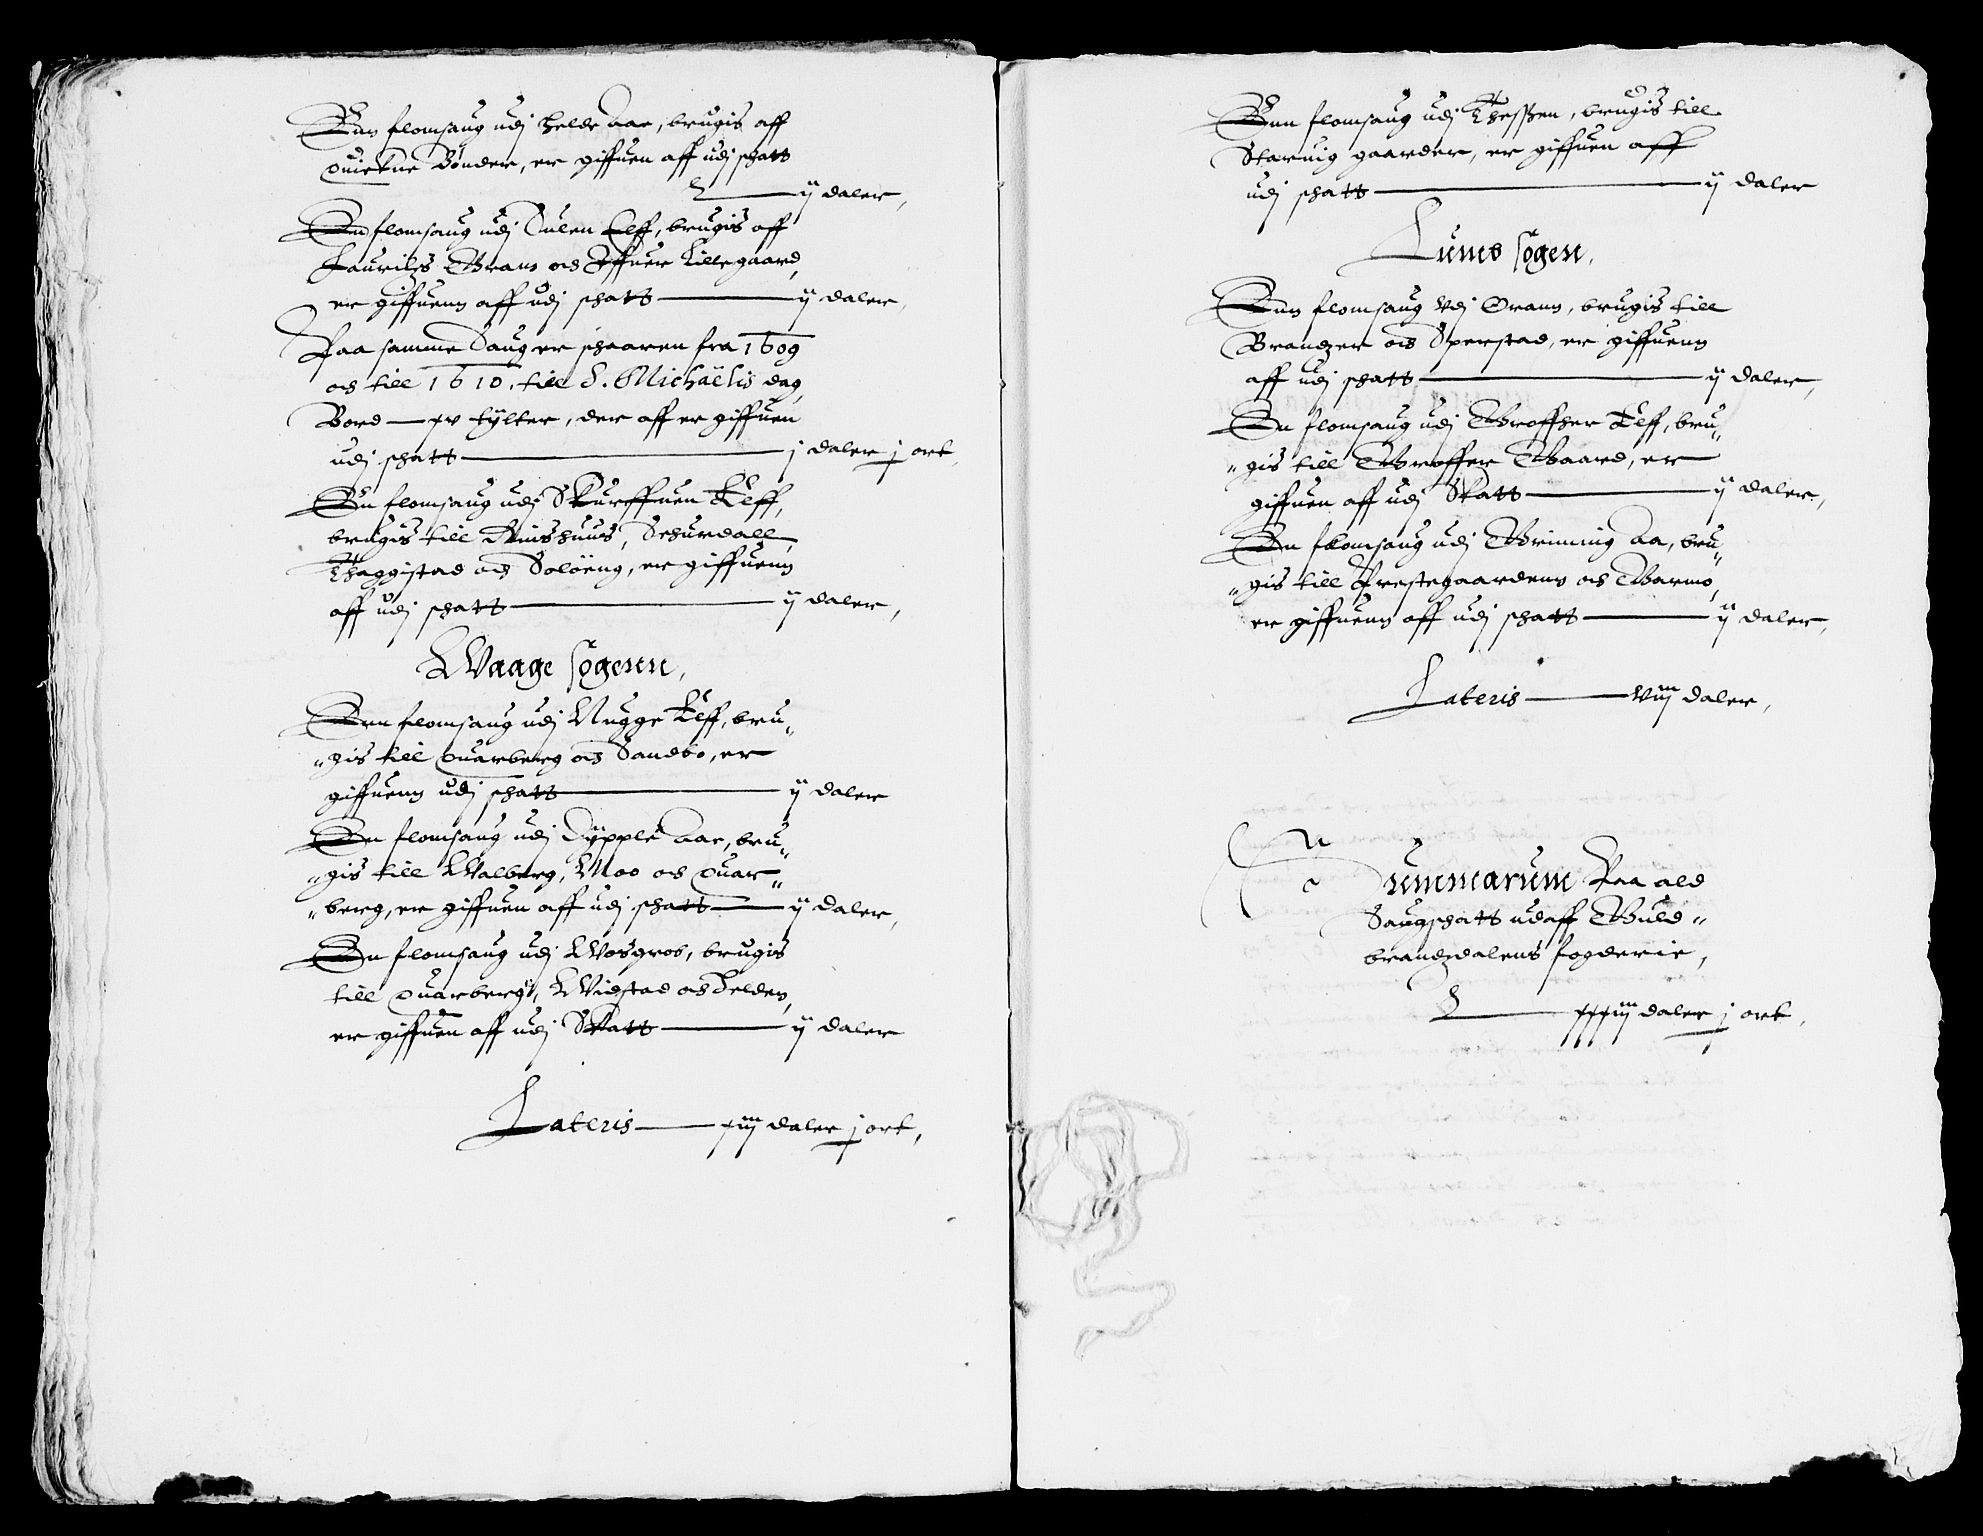 Enn flomsaug udj helde aae, brugis aff
Quickne Bønder, er giffuen aff udj schatt
ij daler,
En flomsaug udj Sulen Elff, brugis aff
Lauritzs Gram och Iffuer Lillegaard,
er giffuenn aff udj schatt ij daler,
Paa samme Saug er schaaren fra 1609
och till 1610, till S. Michaëlis dag,
Bord xv tÿlter, der aff er giffuen
udj schatt j daler j ort,
En flomsaug udj Skurffuen Elff,
brugis till Ruishuus, Schurdall,
Thaggistad och Soløeng, er giffuenn
aff udj schatt ij daler,
Waage sogenn,
Een flomsaug udj Nugge Elff, bru„
„gis till Quarberg och Sandbo, er
giffuenn udj schatt ij daler
En flomsaug udj Dÿpple aae, bru„
„gis till Walberg, Moo och Quar„
„berg, er giffuen aff udj schatt ij daler,
En flomsaug udj Wosgrob, brugis
till Quarberg, Widstad och Felden,
er giffuen aff udj Skatt ij daler
Lateris xiiij daler j ort,
Enn flomsaug udj Thessen, brugis till
Staruig gaarder, er giffuen aff
udj schatt ij daler
Lumbs sogen,
Enn flomsaug vdj Oraan, brugis till
Brandzer och Sperstad, er giffuenn
aff udj schatt ij daler,
En flomsaug udj Groffher Elff, bru„
„gis till Groffer Gaard, er
giffuen aff udj Skatt ij daler,
En flomsaug udj Grimming Aa, bru„
„gis till Prestegaardenn och Garmo,
er giffuenn aff udj schatt ij daler,
Lateris viij daler,
Summarum Paa ald
Saugschatt udaff Guld„
brandzdalens fogderie,
xxxiiij daler j ort,